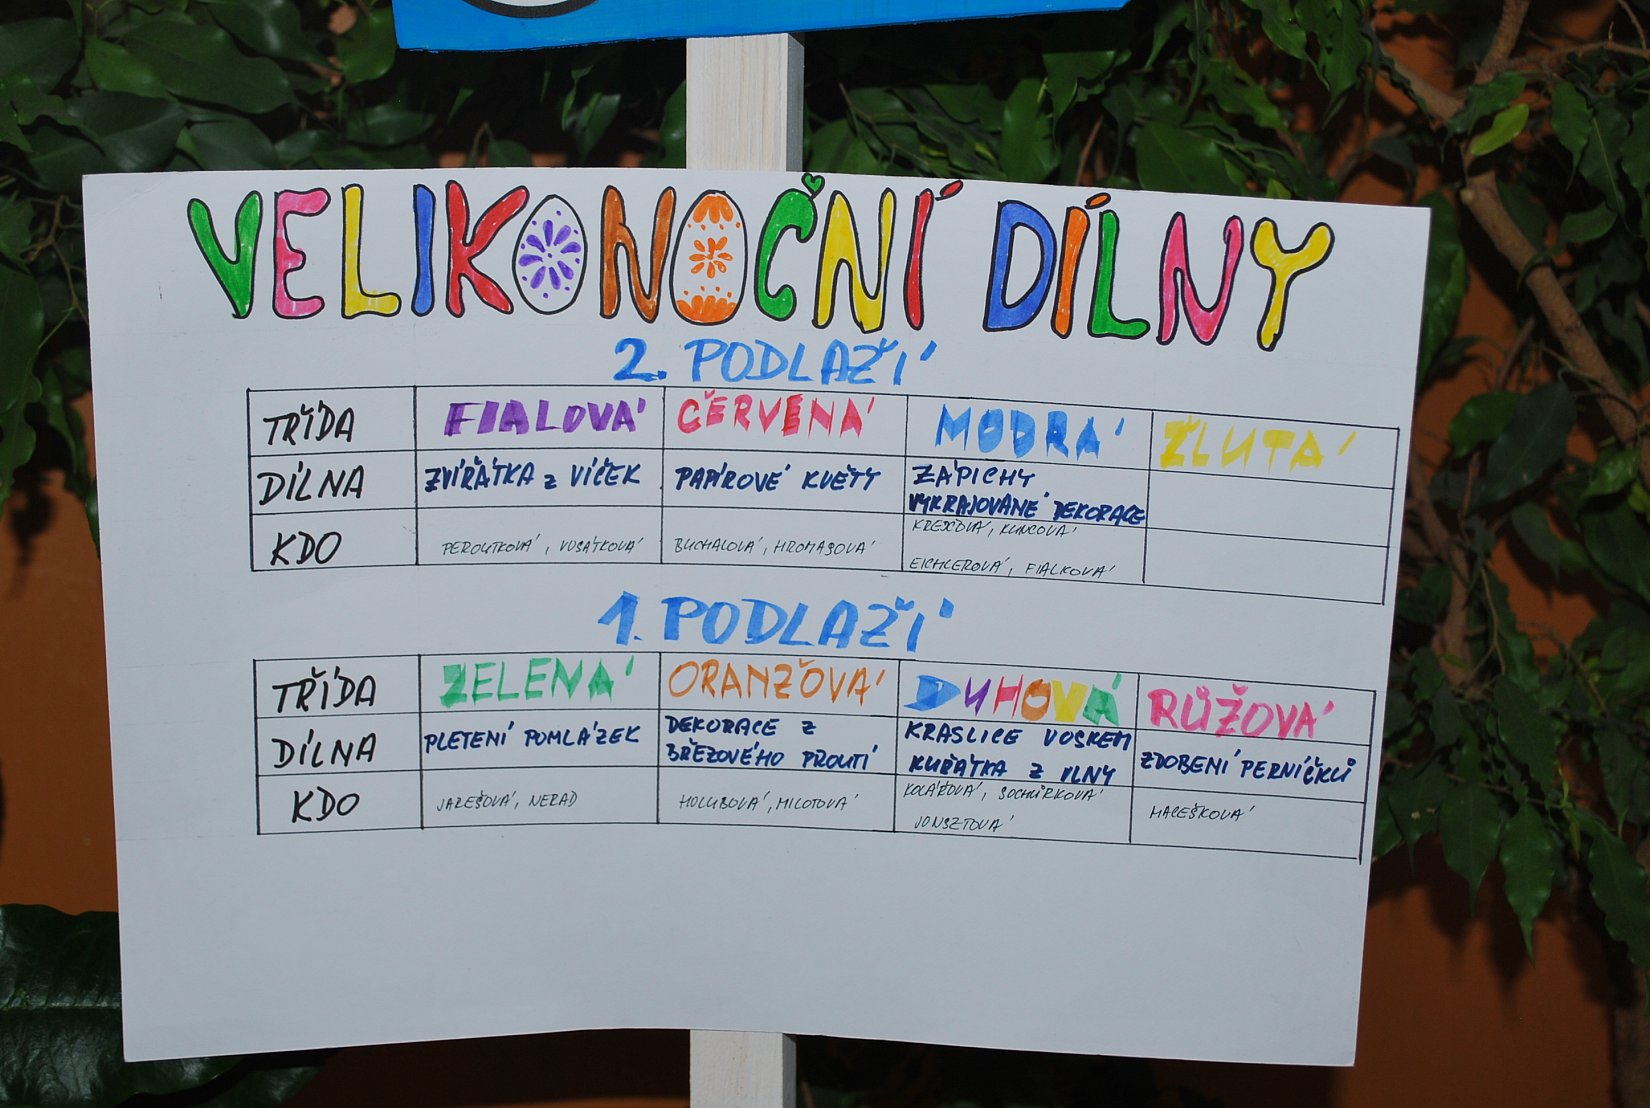 VELIKONOČNÍ DÍLNY
2. PODLAŽÍ
TŘÍDA FIALOVÁ ČERVENÁ MODRÁ ŽLUTÁ
DÍLNA ZVÍŘÁTKA z VÍČEK PAPÍROVÉ KVĚTY ZÁPICHY
VYKRAJOVANÉ DEKORACE
KDO PEROUTKOVÁ, VOSÁTKOVÁ BUCHALOVÁ, HROMASOVÁ KREJČOVÁ, KUNCOVÁ
EICHLEROVÁ, FIALKOVÁ
1. PODLAŽÍ
TŘÍDA ZELENÁ ORANŽOVÁ DUHOVÁ RŮŽOVÁ
DÍLNA PLETENÍ POMLÁZEK DEKORACE Z
BŘEZOVÉHO PROUTÍ KRASLICE VOSKEM
KUŘÁTKA Z VLNY ZDOBENÍ PERNÍČKŮ
KDO JAREŠOVÁ, NERAD HOLUBOVÁ, MILOTOVÁ KOLÁŘOVÁ, SOCHŮRKOVÁ
JONSZTOVÁ MAREŠKOVÁ